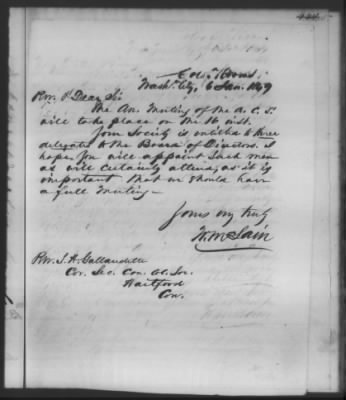 Col. Rooms,
Wash. City, 6 Jan. 1849
Rev. & Dear Sir
The An. Meeting of the A. C. S.
will take place on the 16 inst.
Your Society is entitled to three
delegates to the Board of Directors. I
hope you will appoint such men
as will certainly attend, as it is
important that we should have
a full meeting—
Yours very truly
W. McLain
Rev. T. H. Gallaudett
Cor. Sec. Con. Col. Soc.
Hartford
Con.